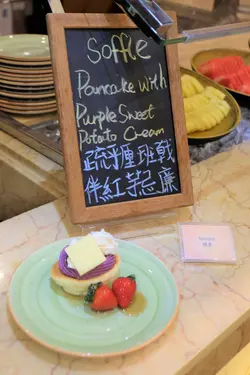 Soffle
Pancake with
Purple Sweet
Potato Cream
疏厘班戟
伴紅芋忌廉